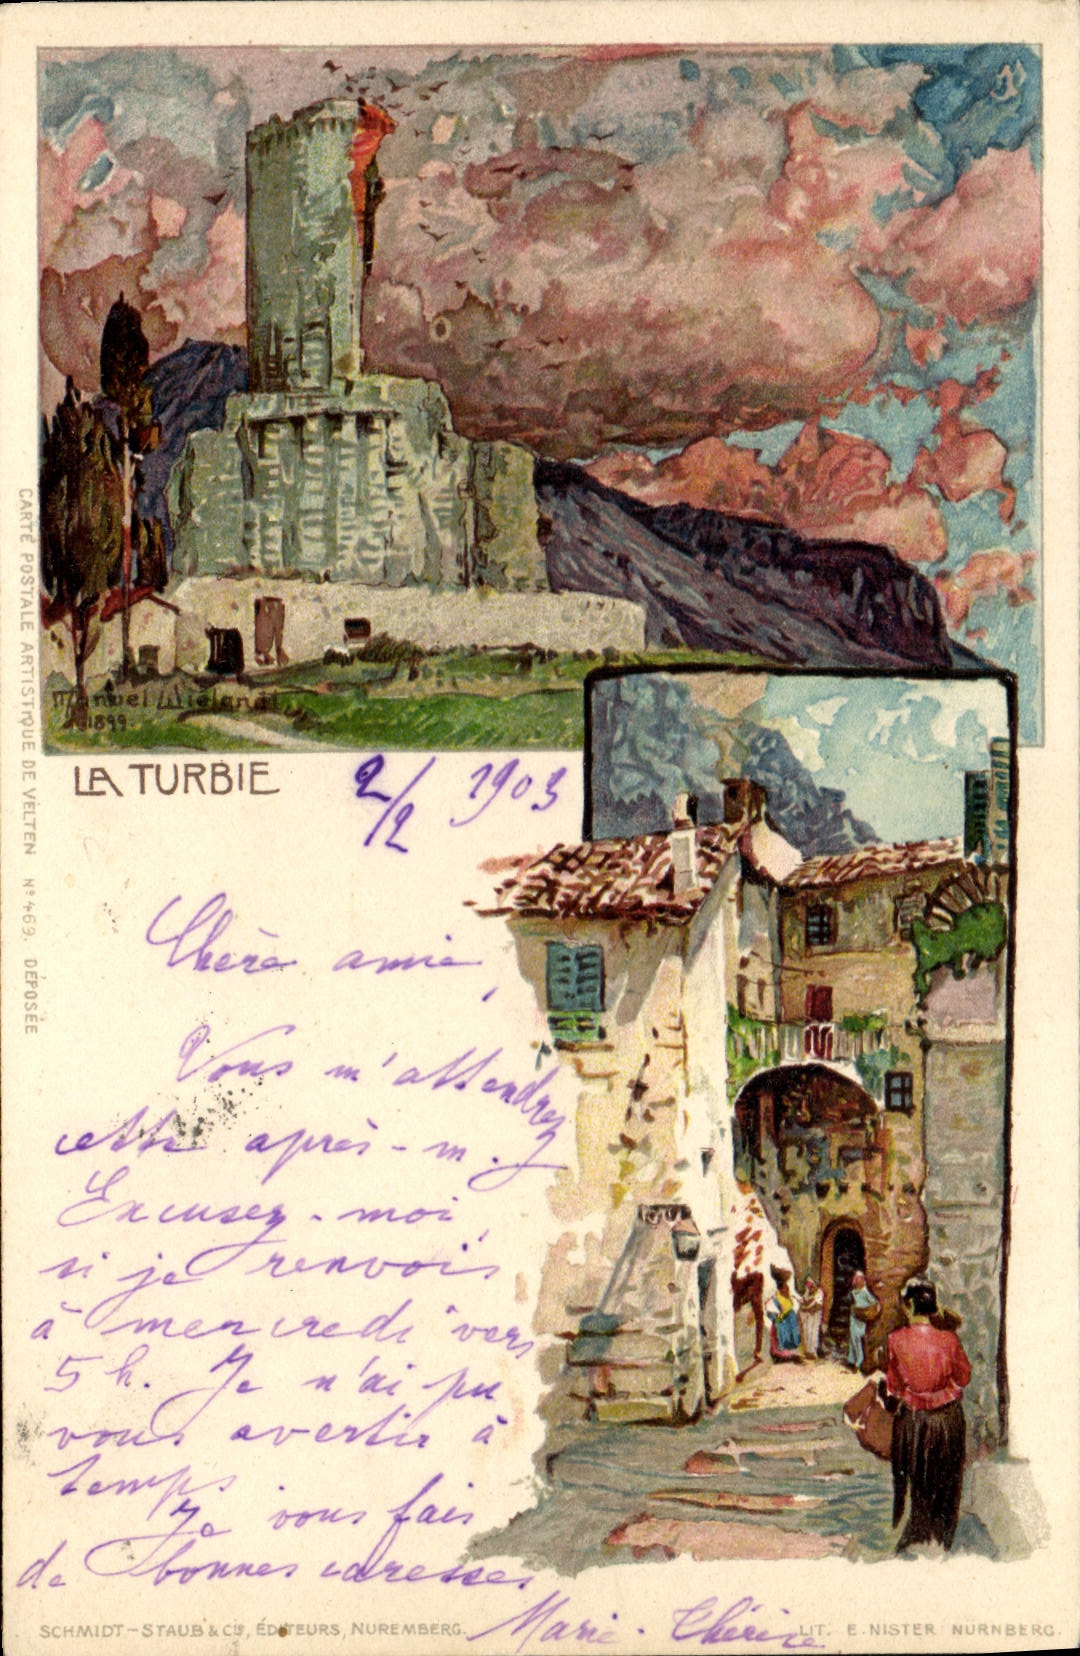 Manuel Wielandt
1899.
LA TURBIE
2/2 1903
Chère amie,
Vous m'attendrez
cette après-m.
Excusez-moi
si je renvois
à mercredi vers
5 h. Je n'ai pu
vous avertir à
temps
Je vous fais
de bonnes caresses
Marie-Thérèse
CARTE POSTALE ARTISTIQUE DE VELTEN Nº 469. DÉPOSÉE
SCHMIDT-STAUB & CIE, ÉDITEURS, NUREMBERG.
LIT. E. NISTER NÜRNBERG.